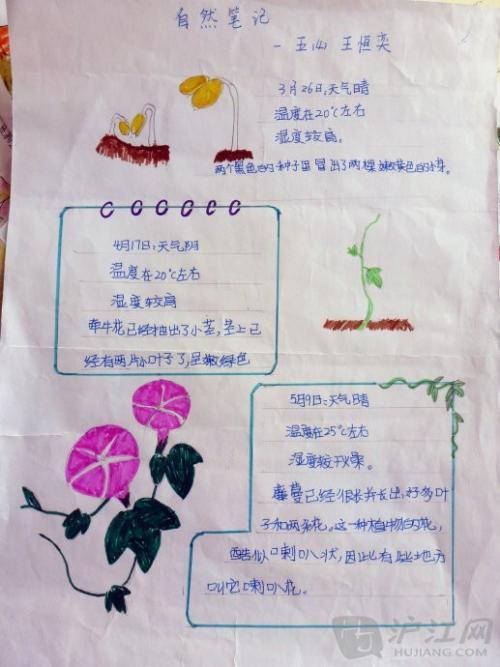 自然笔记
- 五(4) 王恒奕
3月26日:天气晴
温度在20℃左右
湿度较高。
两个黑色的种子里冒出了两棵嫩黄色的小芽。
4月17日:天气阴
温度在20℃左右
湿度较高
牵牛花已经抽出了小茎,茎上已
经有两片小叶子了,呈嫩绿色
5月9日:天气晴
温度在25℃左右
湿度较干燥。
藤蔓已经很长并长出好多叶
子和两朵花。这一种植物的花,
酷似喇叭状,因此有些地方
叫它喇叭花。
沪江网
HUJIANG.COM